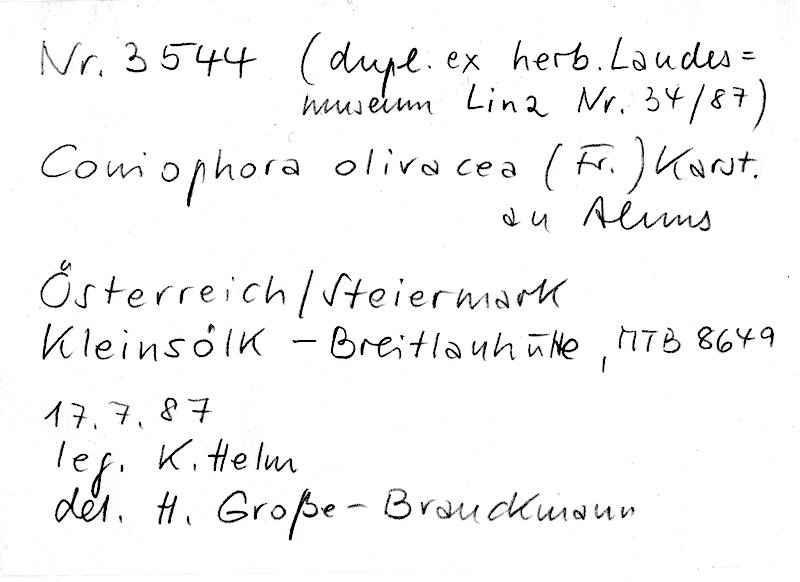 Nr. 3544 (dupl. ex herb. Landes=
museum Linz Nr. 34/87)
Coniophora olivacea (Fr.) Karst.
an Alnus
Österreich/Steiermark
Kleinsölk - Breitlahnhütte, MTB 8649
17.7.87
leg. K. Helm
det. H. Große-Brauckmann